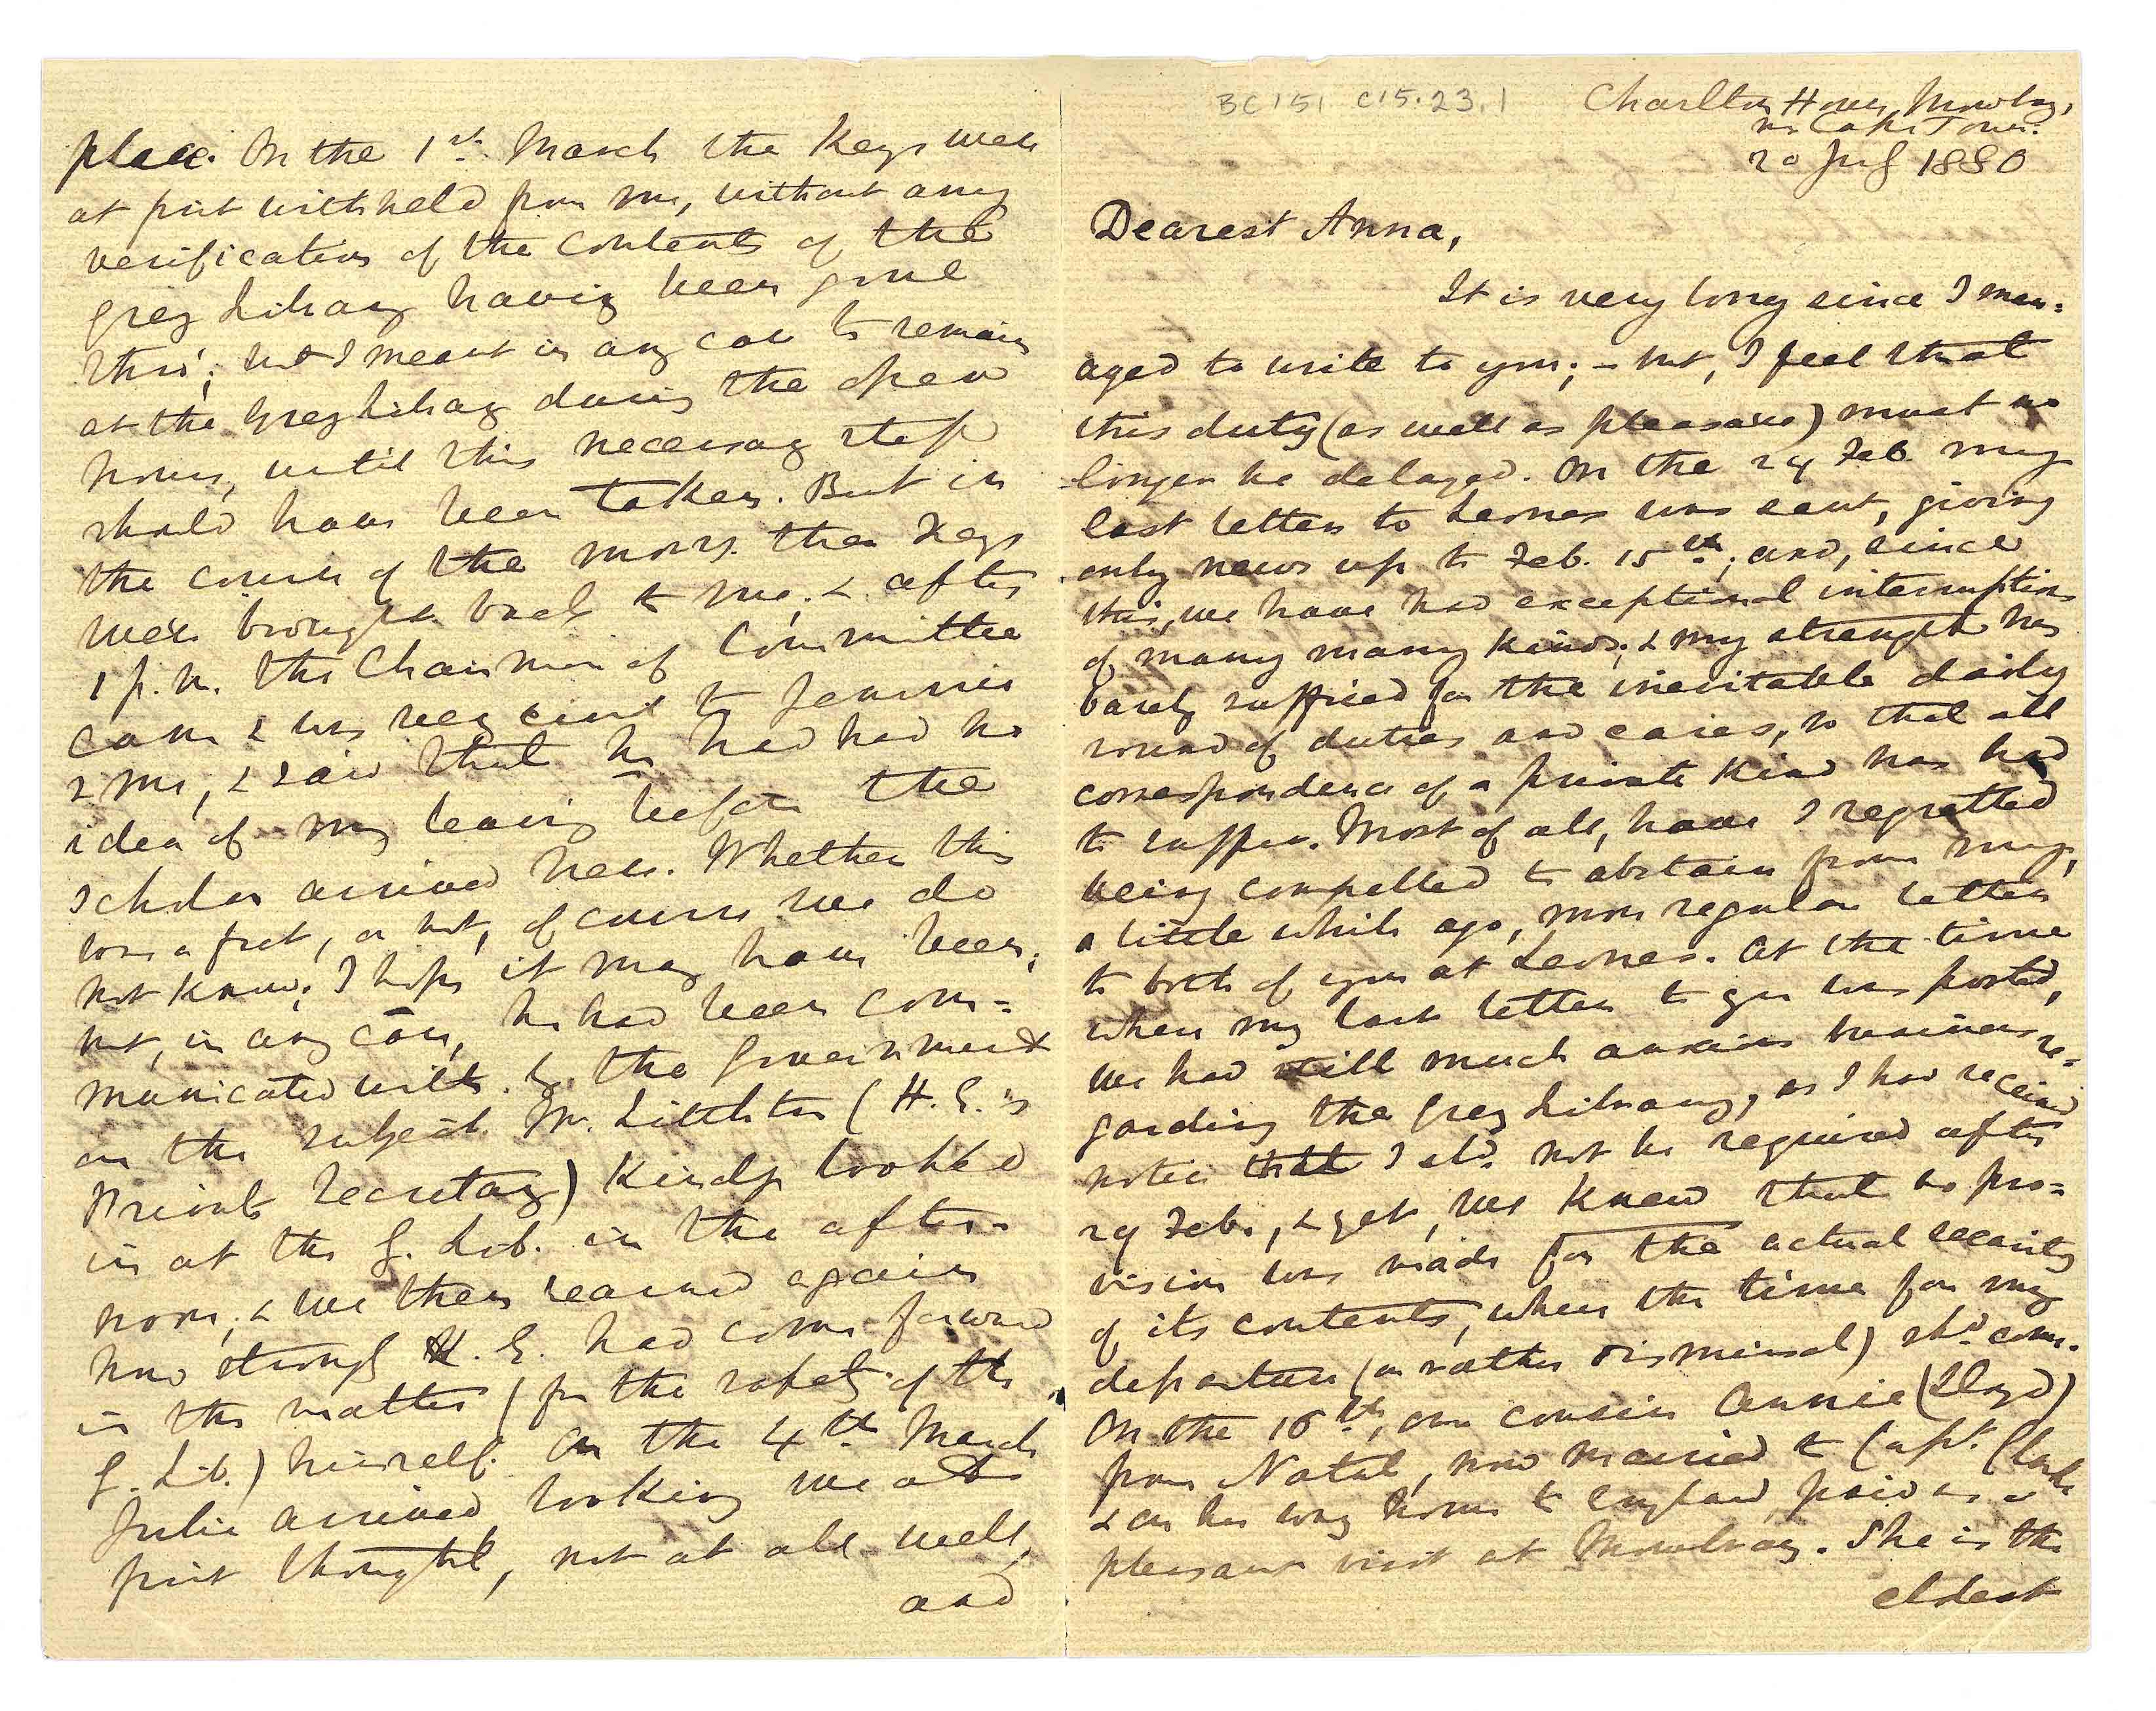 BC 151 C15.23.1
Charlton House, Mowbray,
nr. Cape Town.
20 July 1880
Dearest Anna,
It is very long since I man=
aged to write to you; – but, I feel that
this duty (as well as pleasure) must no
longer be delayed. On the 24 Feb. my
last letter to Leones was sent, giving
only news up to Feb. 15th; and, since
this, we have had exceptional interruptions
of many many kinds; & my strength has
barely sufficed for the inevitable daily
round of duties and cares, so that all
correspondence of a private kind has had
to suffer. Most of all, have I regretted
being compelled to abstain from my,
a little while ago, more regular letters
to both of you at Leones. At the time
when my last letter to you was posted,
we had still much anxious business re=
garding the Grey Library, as I had received
notice that I shd. not be required after
29 Feb., & yet, we knew that no pro=
vision was made for the actual security
of its contents, when the time for my
departure (or rather dismissal) shd. come.
On the 16th, our cousin Annie (Lloyd)
from Natal, now married to Capt. Clarke
& on her way home to England paid us a
pleasant visit at Mowbray. She is the
eldest
place. On the 1st March the Keys were
at first withheld from me, without any
verification of the contents of the
Grey Library having been gone
thro'; but I meant in any case to remain
at the Grey Library during the open
hours, until this necessary step
should have been taken. But in
the course of the morng. the Keys
were brought back to me; & after
1 p.m. the Chairman of Committee
came & was very civil to Jemima
& me, & said that he had had no
idea of my leaving before the
scholar arrived here. Whether this
was a fact, or not, of course we do
not know; I hope it may have been;
but, in any case, he had been com=
municated with by the Government
on the subject. Mr. Littleton (H.E.'s
Private Secretary) kindly looked
in at the G. Lib. in the after=
noon; & we then learned again
how strongly H.E. had come forward
in the matter (for the safety of the
G. Lib.) himself. On the 4th March
Julie arrived looking we at
first thought, not at all well,
and